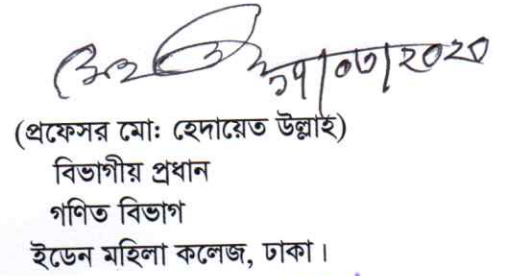 ১৭/০৩/২০২০
(প্রফেসর মো: হেদায়েত উল্লাহ)
বিভাগীয় প্রধান
গণিত বিভাগ
ইডেন মহিলা কলেজ, ঢাকা।